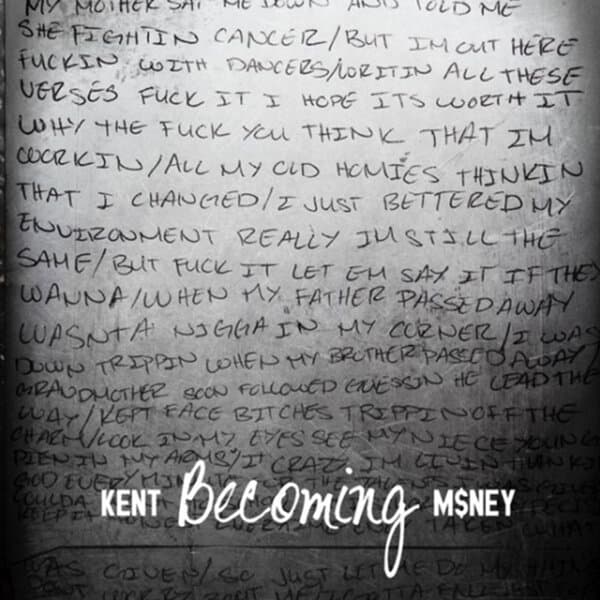 MY MOTHER SAT ME DOWN AND TOLD ME
SHE FIGHTIN CANCER/BUT IM OUT HERE
FUCKIN WITH DANCERS/WRITIN ALL THESE
VERSES FUCK IT I HOPE ITS WORTH IT
WHY THE FUCK YOU THINK THAT IM
WORKIN/ALL MY OLD HOMIES THINKIN
THAT I CHANGED/I JUST BETTERED MY
ENVIRONMENT REALLY IM STILL THE
SAME/BUT FUCK IT LET EM SAY IT IF THEY
WANNA/WHEN MY FATHER PASSED AWAY
WASNT A NIGGA IN MY CORNER/I WAS
DOWN TRIPPIN WHEN MY BROTHER PASSED AWAY/
GRANDMOTHER SOON FOLLOWED GUESSIN HE LEAD THE
WAY/KEPT FACE BITCHES TRIPPIN OFF THE
CHARM/LOOK IN MY EYES SEE MY NIECE YOUNG
DIEN IN MY ARMS/IT CRAZY IM LIVIN
GOD EVERY
KENT Becoming M$NEY
TAKEN WHAT
WAS GIVEN/SO JUST LET ME DO MY